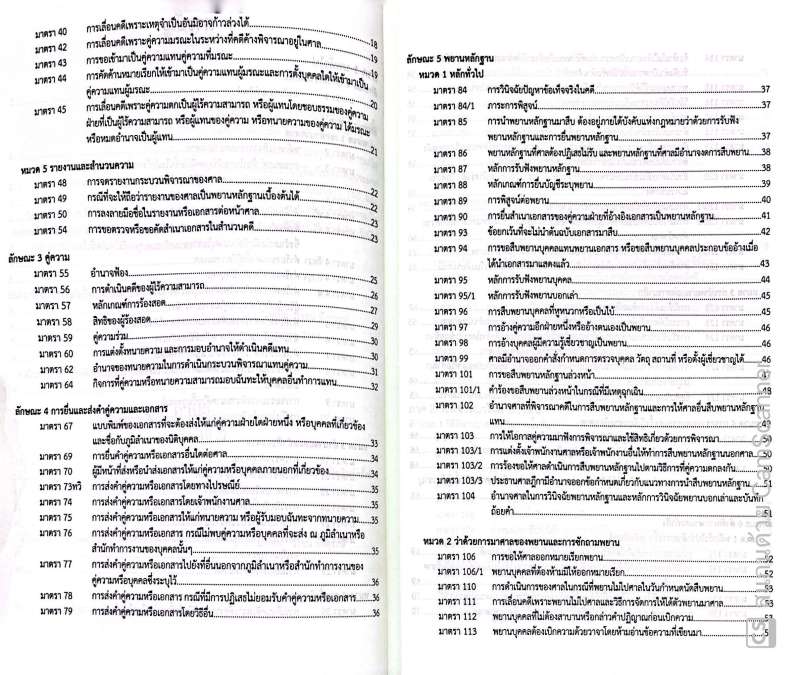 มาตรา 40 การเลื่อนคดีเพราะเหตุจำเป็นอันมิอาจก้าวล่วงได้ 18
มาตรา 42 การเลื่อนคดีเพราะคู่ความมรณะในระหว่างที่คดีค้างพิจารณาอยู่ในศาล 19
มาตรา 43 การขอเข้ามาเป็นคู่ความแทนคู่ความที่มรณะ 19
มาตรา 44 การคัดค้านหมายเรียกให้เข้ามาเป็นคู่ความแทนผู้มรณะและการตั้งบุคคลใดให้เข้ามาเป็น
คู่ความแทนผู้มรณะ 20
มาตรา 45 การเลื่อนคดีเพราะคู่ความตกเป็นผู้ไร้ความสามารถ หรือผู้แทนโดยชอบธรรมของคู่ความ
ฝ่ายที่เป็นผู้ไร้ความสามารถ หรือผู้แทนของคู่ความ หรือทนายความของคู่ความ ได้มรณะ
หรือหมดอำนาจเป็นผู้แทน 21
หมวด 5 รายงานและสำนวนความ
มาตรา 48 การจดรายงานกระบวนพิจารณาของศาล 22
มาตรา 49 กรณีที่จะให้ถือว่ารายงานของศาลเป็นพยานหลักฐานเบื้องต้นได้ 22
มาตรา 50 การลงลายมือชื่อในรายงานหรือเอกสารต่อหน้าศาล 23
มาตรา 54 การขอตรวจหรือขอคัดสำเนาเอกสารในสำนวนคดี 23
ลักษณะ 3 คู่ความ
มาตรา 55 อำนาจฟ้อง 25
มาตรา 56 การดำเนินคดีของผู้ไร้ความสามารถ 26
มาตรา 57 หลักเกณฑ์การร้องสอด 27
มาตรา 58 สิทธิของผู้ร้องสอด 29
มาตรา 59 คู่ความร่วม 30
มาตรา 60 การแต่งตั้งทนายความ และการมอบอำนาจให้ดำเนินคดีแทน 30
มาตรา 62 อำนาจของทนายความในการดำเนินกระบวนพิจารณาแทนคู่ความ 31
มาตรา 64 กิจการที่คู่ความหรือทนายความสามารถมอบฉันทะให้บุคคลอื่นทำการแทน 32
ลักษณะ 4 การยื่นและส่งคำคู่ความและเอกสาร
มาตรา 67 แบบพิมพ์ของเอกสารที่จะต้องส่งให้แก่คู่ความฝ่ายใดฝ่ายหนึ่ง หรือบุคคลที่เกี่ยวข้อง
และชื่อกับภูมิลำเนาของนิติบุคคล 33
มาตรา 69 การยื่นคำคู่ความหรือเอกสารอื่นใดต่อศาล 34
มาตรา 70 ผู้มีหน้าที่ส่งหรือนำส่งเอกสารให้แก่คู่ความหรือบุคคลภายนอกที่เกี่ยวข้อง 34
มาตรา 73ทวิ การส่งคำคู่ความหรือเอกสารโดยทางไปรษณีย์ 35
มาตรา 74 การส่งคำคู่ความหรือเอกสารโดยเจ้าพนักงานศาล 35
มาตรา 75 การส่งคำคู่ความหรือเอกสารให้แก่ทนายความ หรือผู้รับมอบฉันทะจากทนายความ 35
มาตรา 76 การส่งคำคู่ความหรือเอกสาร กรณีไม่พบคู่ความหรือบุคคลที่จะส่ง ณ ภูมิลำเนาหรือ
สำนักทำการงานของบุคคลนั้นๆ 35
มาตรา 77 การส่งคำคู่ความหรือเอกสารไปยังที่อื่นนอกจากภูมิลำเนาหรือสำนักทำการงานของ
คู่ความหรือบุคคลซึ่งระบุไว้ 36
มาตรา 78 การส่งคำคู่ความหรือเอกสาร กรณีที่มีการปฏิเสธไม่ยอมรับคำคู่ความหรือเอกสาร 36
มาตรา 79 การส่งคำคู่ความหรือเอกสารโดยวิธีอื่น 36
ลักษณะ 5 พยานหลักฐาน
หมวด 1 หลักทั่วไป
มาตรา 84 การวินิจฉัยปัญหาข้อเท็จจริงในคดี 37
มาตรา 84/1 ภาระการพิสูจน์ 37
มาตรา 85 การนำพยานหลักฐานมาสืบ ต้องอยู่ภายใต้บังคับแห่งกฎหมายว่าด้วยการรับฟัง
พยานหลักฐานและการยื่นพยานหลักฐาน 37
มาตรา 86 พยานหลักฐานที่ศาลต้องปฏิเสธไม่รับ และพยานหลักฐานที่ศาลมีอำนาจงดการสืบพยาน 38
มาตรา 87 หลักการรับฟังพยานหลักฐาน 38
มาตรา 88 หลักเกณฑ์การยื่นบัญชีระบุพยาน 39
มาตรา 89 การพิสูจน์ต่อพยาน 40
มาตรา 90 การยื่นสำเนาเอกสารของคู่ความฝ่ายที่อ้างอิงเอกสารเป็นพยานหลักฐาน 41
มาตรา 93 ข้อยกเว้นที่จะไม่นำต้นฉบับเอกสารมาสืบ 42
มาตรา 94 การขอสืบพยานบุคคลแทนพยานเอกสาร หรือขอสืบพยานบุคคลประกอบข้ออ้างเมื่อ
ได้นำเอกสารมาแสดงแล้ว 43
มาตรา 95 หลักการรับฟังพยานบุคคล 44
มาตรา 95/1 หลักการรับฟังพยานบอกเล่า 45
มาตรา 96 การสืบพยานบุคคลที่หูหนวกหรือเป็นใบ้ 45
มาตรา 97 การอ้างคู่ความอีกฝ่ายหนึ่งหรืออ้างตนเองเป็นพยาน 46
มาตรา 98 การอ้างบุคคลผู้มีความรู้เชี่ยวชาญเป็นพยาน 46
มาตรา 99 ศาลมีอำนาจออกคำสั่งกำหนดการตรวจบุคคล วัตถุ สถานที่ หรือตั้งผู้เชี่ยวชาญได้ 46
มาตรา 101 การขอสืบพยานหลักฐานล่วงหน้า
มาตรา 101/1 คำร้องขอสืบพยานล่วงหน้าในกรณีที่มีเหตุฉุกเฉิน 48
มาตรา 102 อำนาจศาลที่พิจารณาคดีในการสืบพยานหลักฐานและการให้ศาลอื่นสืบพยานหลักฐาน
แทน 49
มาตรา 103 การให้โอกาสคู่ความมาฟังการพิจารณาและใช้สิทธิเกี่ยวด้วยการพิจารณา 50
มาตรา 103/1 การแต่งตั้งเจ้าพนักงานศาลหรือเจ้าพนักงานอื่นให้ทำการสืบพยานหลักฐานนอกศาล
มาตรา 103/2 การร้องขอให้ศาลดำเนินการสืบพยานหลักฐานไปตามวิธีการที่คู่ความตกลงกัน
มาตรา 103/3 ประธานศาลฎีกามีอำนาจออกข้อกำหนดเกี่ยวกับแนวทางการนำสืบพยานหลักฐาน 51
มาตรา 104 อำนาจศาลในการวินิจฉัยพยานหลักฐานและหลักการวินิจฉัยพยานบอกเล่าและบันทึก
ถ้อยคำ 51
หมวด 2 ว่าด้วยการมาศาลของพยานและการซักถามพยาน
มาตรา 106 การขอให้ศาลออกหมายเรียกพยาน 52
มาตรา 106/1 พยานบุคคลที่ต้องห้ามมิให้ออกหมายเรียก 52
มาตรา 110 การดำเนินการของศาลในกรณีที่พยานไม่ไปศาลในวันกำหนดนัดสืบพยาน 53
มาตรา 111 การเลื่อนคดีเพราะพยานไม่ไปศาลและวิธีการจัดการให้ได้ตัวพยานมาศาล 53
มาตรา 112 พยานบุคคลที่ไม่ต้องสาบานหรือกล่าวคำปฏิญาณก่อนเบิกความ 53
มาตรา 113 พยานบุคคลต้องเบิกความด้วยวาจาโดยห้ามอ่านข้อความที่เขียนมา
CS สแกนด้วย CamScanner